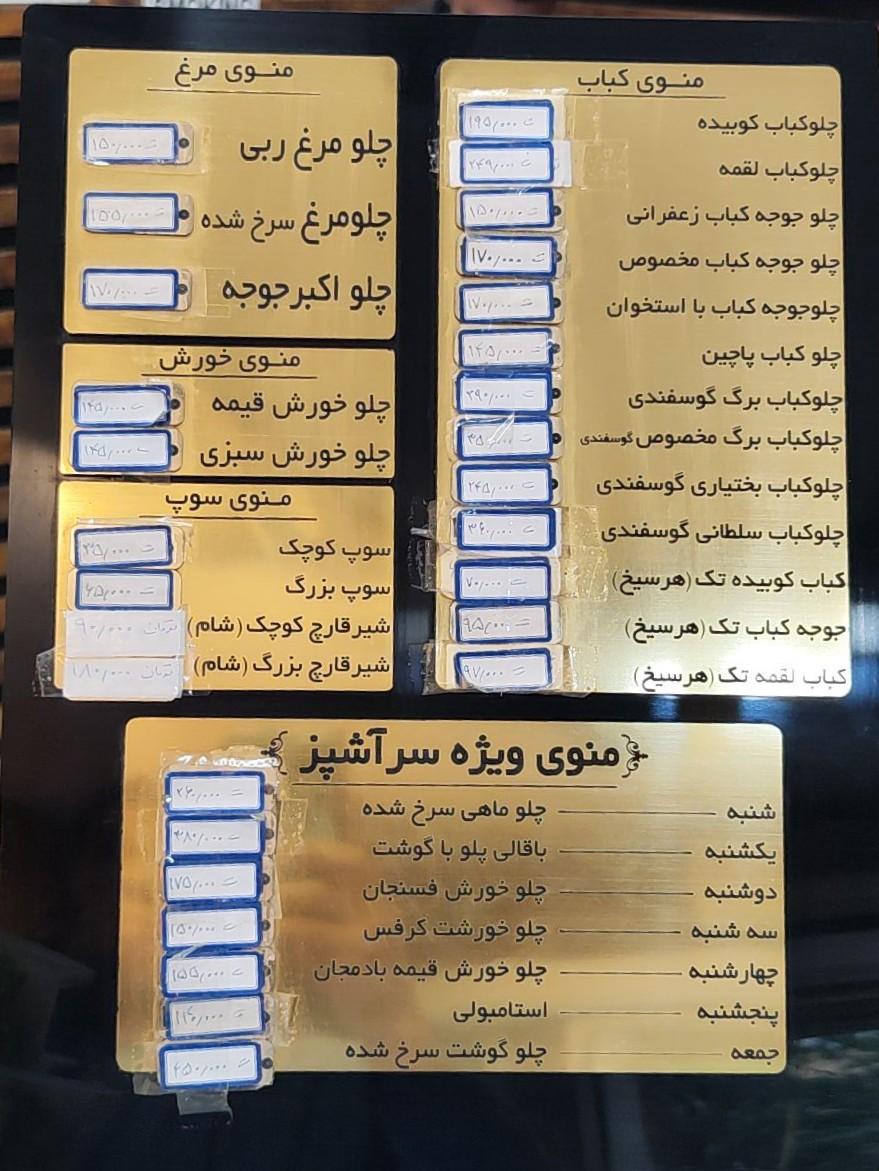 منوی کباب
چلوکباب کوبیده ۱۹۵,۰۰۰ ت
چلوکباب لقمه ۲۴۹,۰۰۰ ت
چلو جوجه کباب زعفرانی ۱۵۰,۰۰۰ ت
چلو جوجه کباب مخصوص ۱۷۰,۰۰۰ ت
چلوجوجه کباب با استخوان ۱۷۰,۰۰۰ ت
چلو کباب پاچین ۱۴۵,۰۰۰ ت
چلوکباب برگ گوسفندی ۲۹۰,۰۰۰ ت
چلوکباب برگ مخصوص گوسفندی
چلوکباب بختیاری گوسفندی ۲۴۵,۰۰۰ ت
چلوکباب سلطانی گوسفندی
کباب کوبیده تک (هرسیخ) ۷۰,۰۰۰ ت
جوجه کباب تک (هرسیخ) ۹۵,۰۰۰ ت
کباب لقمه تک (هرسیخ) ۹۷,۰۰۰ ت
منوی مرغ
چلو مرغ ربی ۱۵۰,۰۰۰ ت
چلومرغ سرخ شده ۱۵۵,۰۰۰ ت
چلو اکبرجوجه ۱۷۰,۰۰۰ ت
منوی خورش
چلو خورش قیمه ۱۴۵,۰۰۰ ت
چلو خورش سبزی ۱۴۵,۰۰۰ ت
منوی سوپ
سوپ کوچک ۳۵,۰۰۰ ت
سوپ بزرگ ۶۵,۰۰۰ ت
شیرقارچ کوچک (شام) ۹۰,۰۰۰ تومان
شیرقارچ بزرگ (شام) ۱۸۰,۰۰۰ تومان
منوی ویژه سرآشپز
شنبه چلو ماهی سرخ شده ۲۶۰,۰۰۰ ت
یکشنبه باقالی پلو با گوشت ۳۸۰,۰۰۰ ت
دوشنبه چلو خورش فسنجان ۱۷۵,۰۰۰ ت
سه شنبه چلو خورشت کرفس ۱۵۰,۰۰۰ ت
چهارشنبه چلو خورش قیمه بادمجان ۱۵۵,۰۰۰ ت
پنجشنبه استامبولی
جمعه چلو گوشت سرخ شده ۴۵۰,۰۰۰ ت